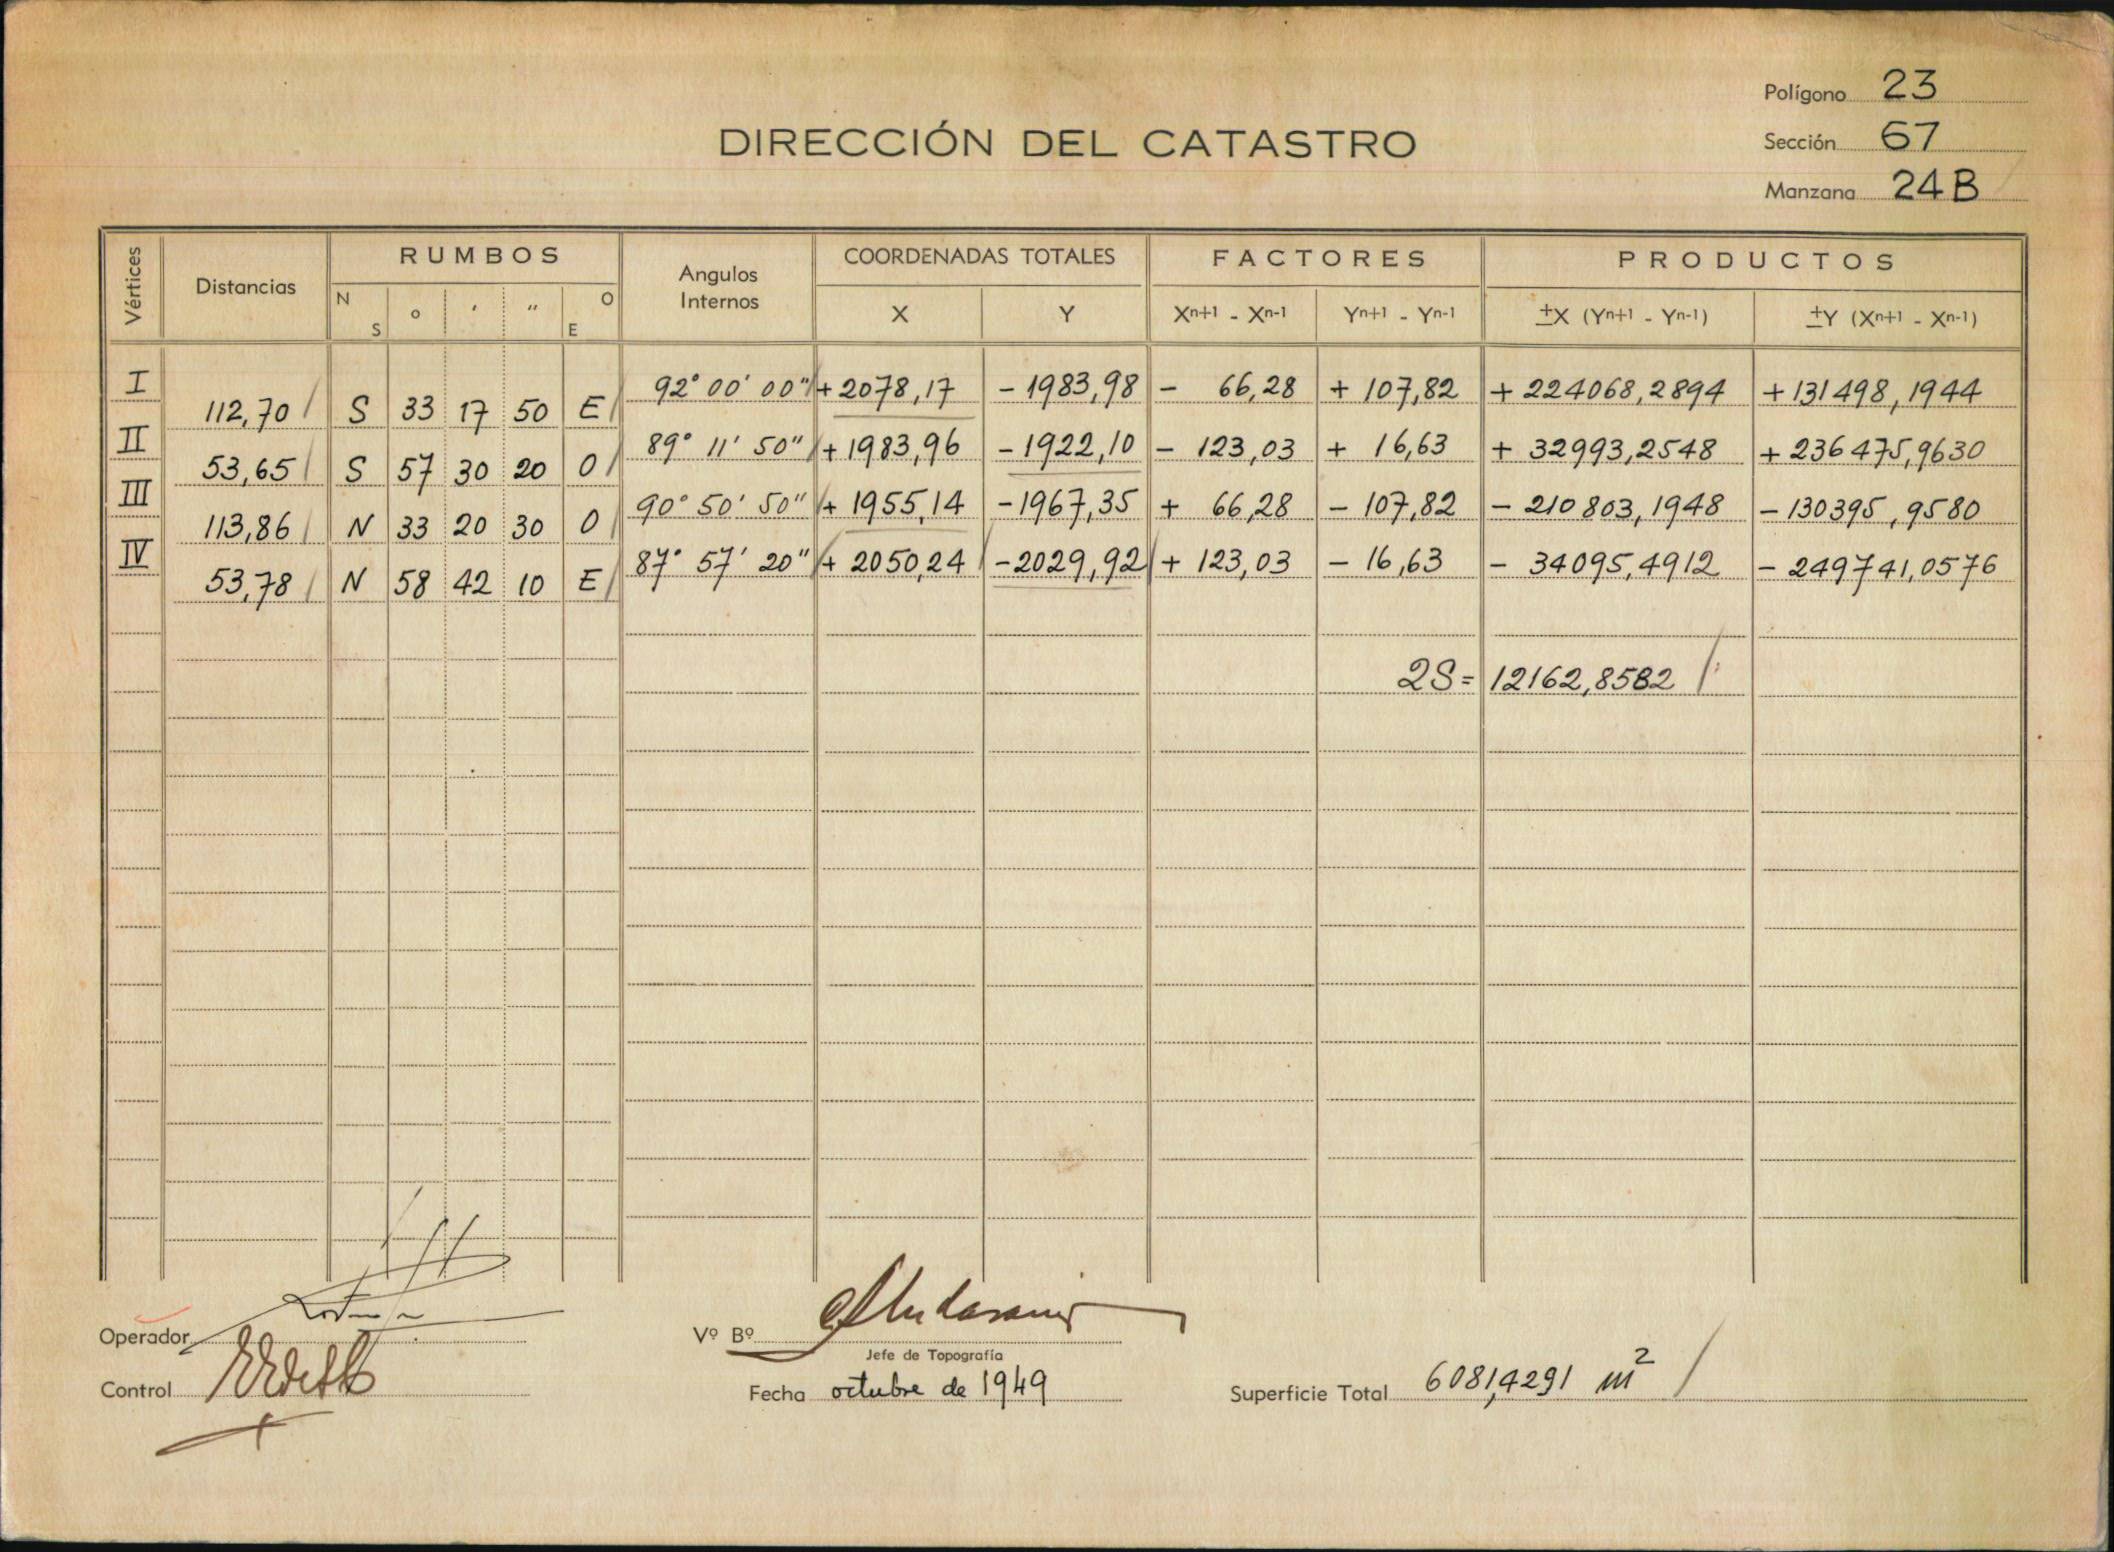 Polígono 23
DIRECCIÓN DEL CATASTRO
Sección 67
Manzana 24B
Vértices Distancias RUMBOS Angulos Internos COORDENADAS TOTALES FACTORES PRODUCTOS
N S ° ' " O E X Y Xn+1 - Xn-1 Yn+1 - Yn-1 ±X (Yn+1 - Yn-1) ±Y (Xn+1 - Xn-1)
I 92° 00' 00" + 2078,17 - 1983,98 - 66,28 + 107,82 + 224068,2894 + 131498,1944
112,70 S 33 17 50 E
II 89° 11' 50" + 1983,96 - 1922,10 - 123,03 + 16,63 + 32993,2548 + 236475,9630
53,65 S 57 30 20 O
III 90° 50' 50" + 1955,14 - 1967,35 + 66,28 - 107,82 - 210803,1948 - 130395,9580
113,86 N 33 20 30 O
IV 87° 57' 20" + 2050,24 - 2029,92 + 123,03 - 16,63 - 34095,4912 - 249741,0576
53,78 N 58 42 10 E
2S= 12162,8582
Operador
Vº Bº
Jefe de Topografía
Control
Fecha octubre de 1949
Superficie Total 6081,4291 m²